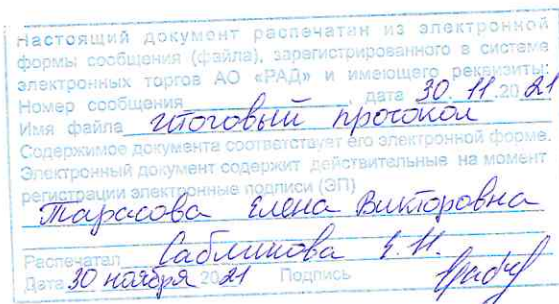 Настоящий документ распечатан из электронной
формы сообщения (файла), зарегистрированного в системе
электронных торгов АО «РАД» и имеющего реквизиты:
Номер сообщения дата 30. 11. 20 21
Имя файла итоговый протокол
Содержимое документа соответствует его электронной форме.
Электронный документ содержит действительные на момент
регистрации электронные подписи (ЭП)
Тарасова Елена Викторовна
Распечатал Саблинова Е.Н.
Дата 30 ноября 20 21 Подпись